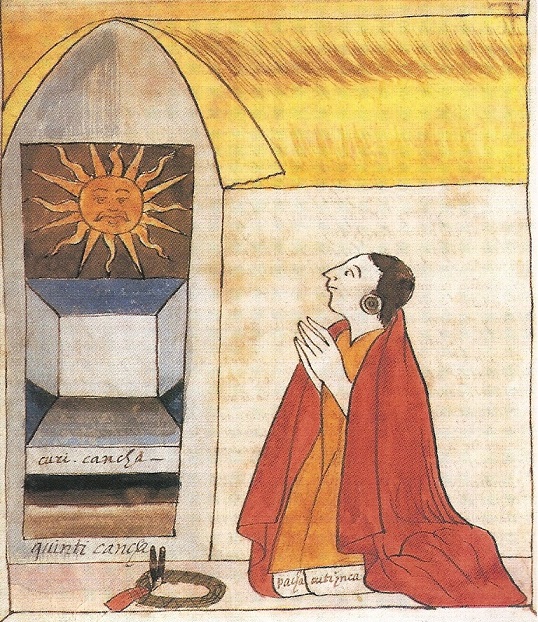 curi. cancha —
quinti cancha
pacha cuti ynca